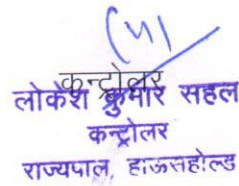 (4)
कन्ट्रोलर
लोकेश कुमार सहल
कन्ट्रोलर
राज्यपाल, हाऊसहोल्ड